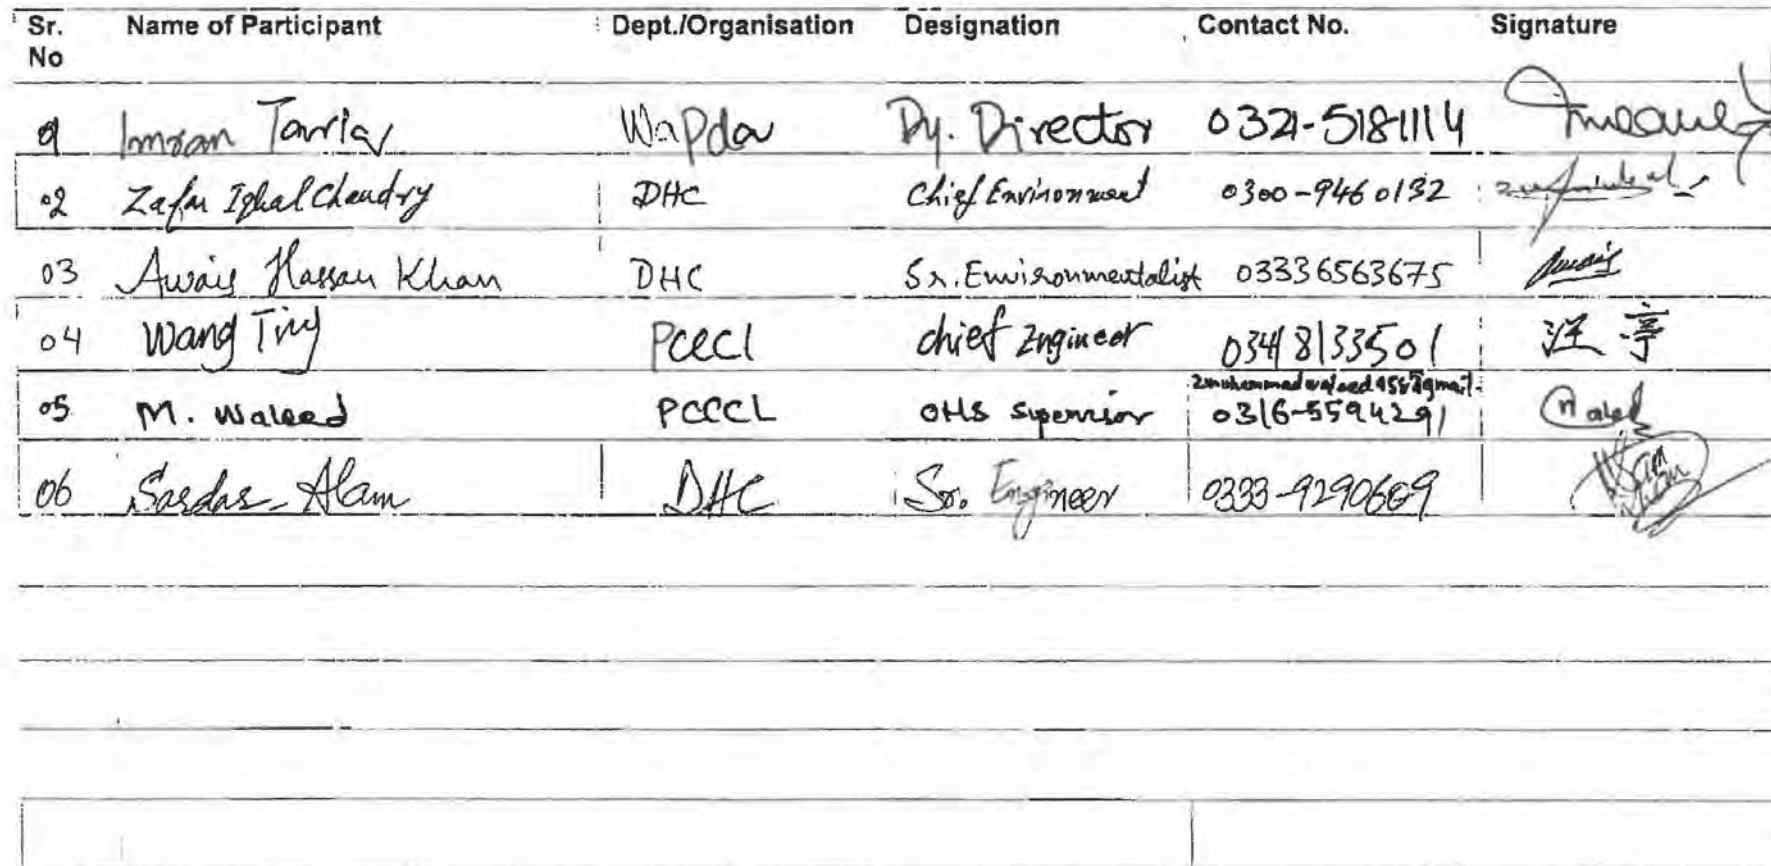 Sr. No Name of Participant Dept./Organisation Designation Contact No. Signature
01 Imran Tariq Wapda Dy. Director 0321-5181114
02 Zafar Iqbal Chaudry DHC Chief Environment 0300-9460132
03 Awais Hassan Khan DHC Sr. Environmentalist 03336563675 Awais
04 Wang Ting PCCCL chief Engineer 03418133501 汪亭
05 M. Waleed PCCCL OHS Supervisor 0316-5594291 Waleed
06 Sardar Alam DHC Sr. Engineer 0333-9290609